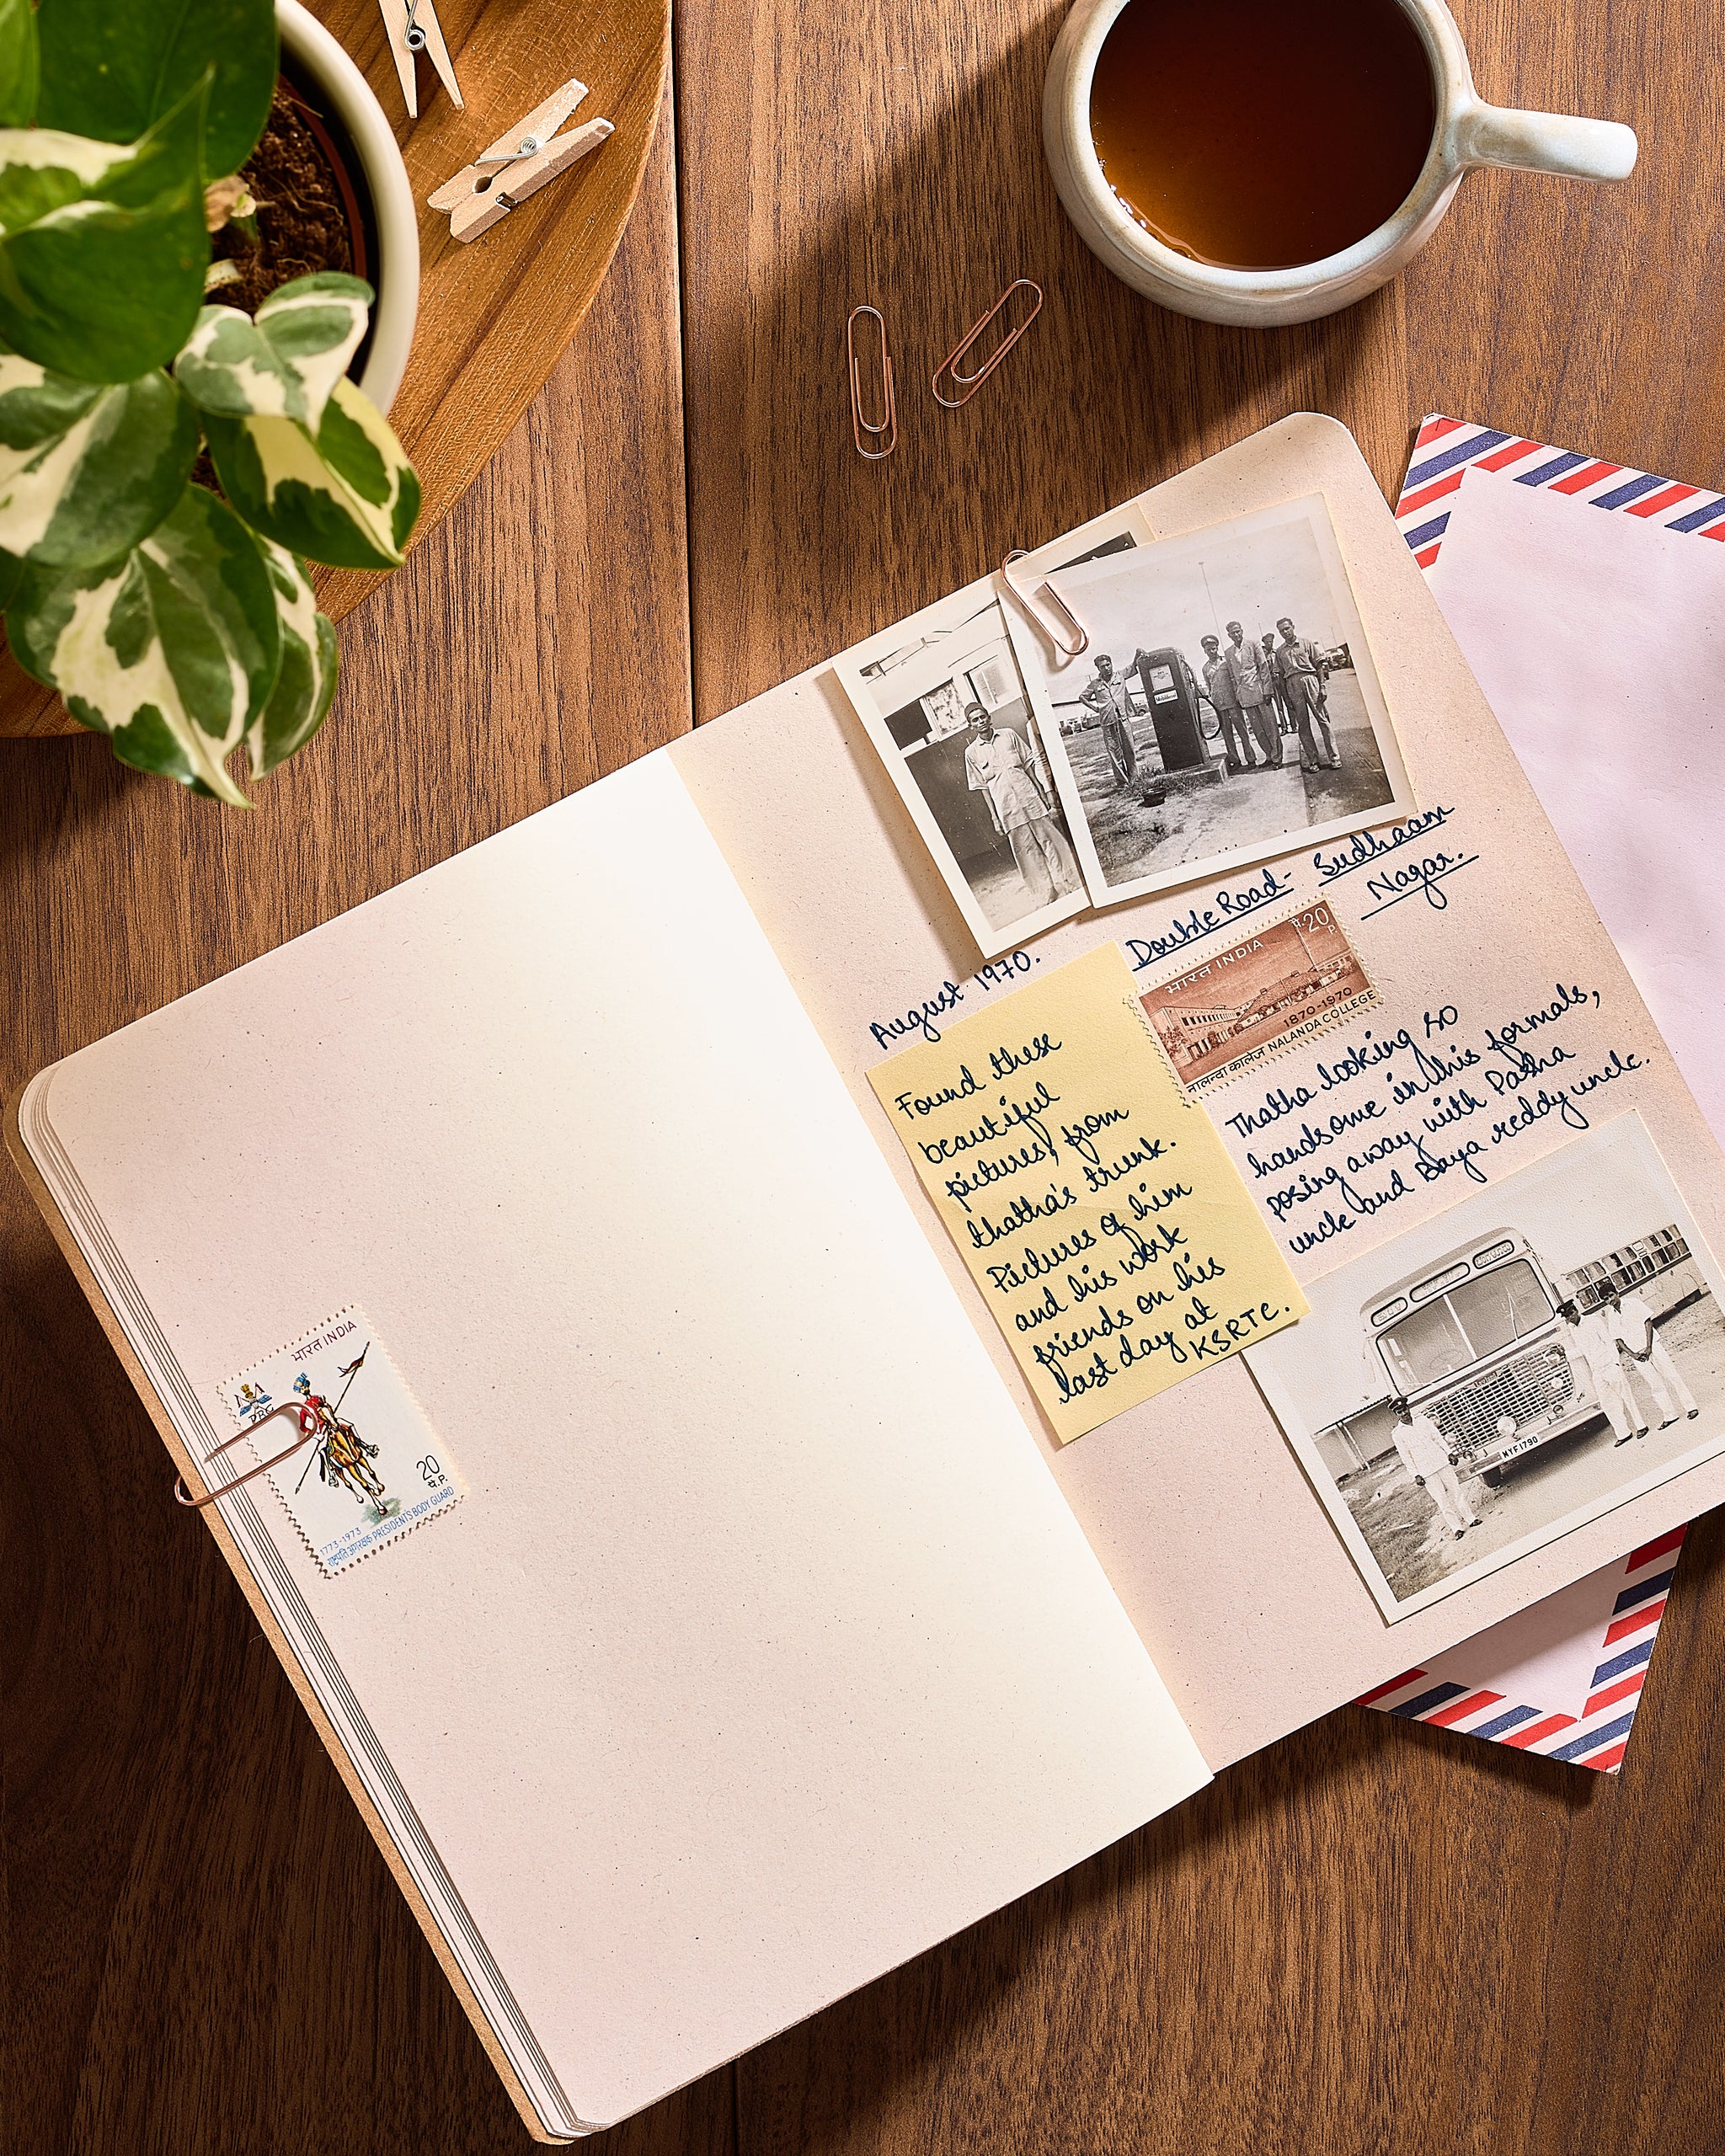 भारत INDIA
PBG
20
पै. P.
1773-1973
राष्ट्रपति अंगरक्षक PRESIDENT'S BODY GUARD
Double Road- Sudhaam
Nagar.
August 1970.
भारत INDIA
पै. 20 P.
1870-1970
नालन्दा कालेज NALANDA COLLEGE
Found these
beautiful
pictures, from
thatha's trunk.
Pictures of him
and his work
friends on his
last day at
KSRTC.
Thatha looking so
handsome in his formals,
posing away with Pasha
uncle and Baya reddy uncle.
MYF1790